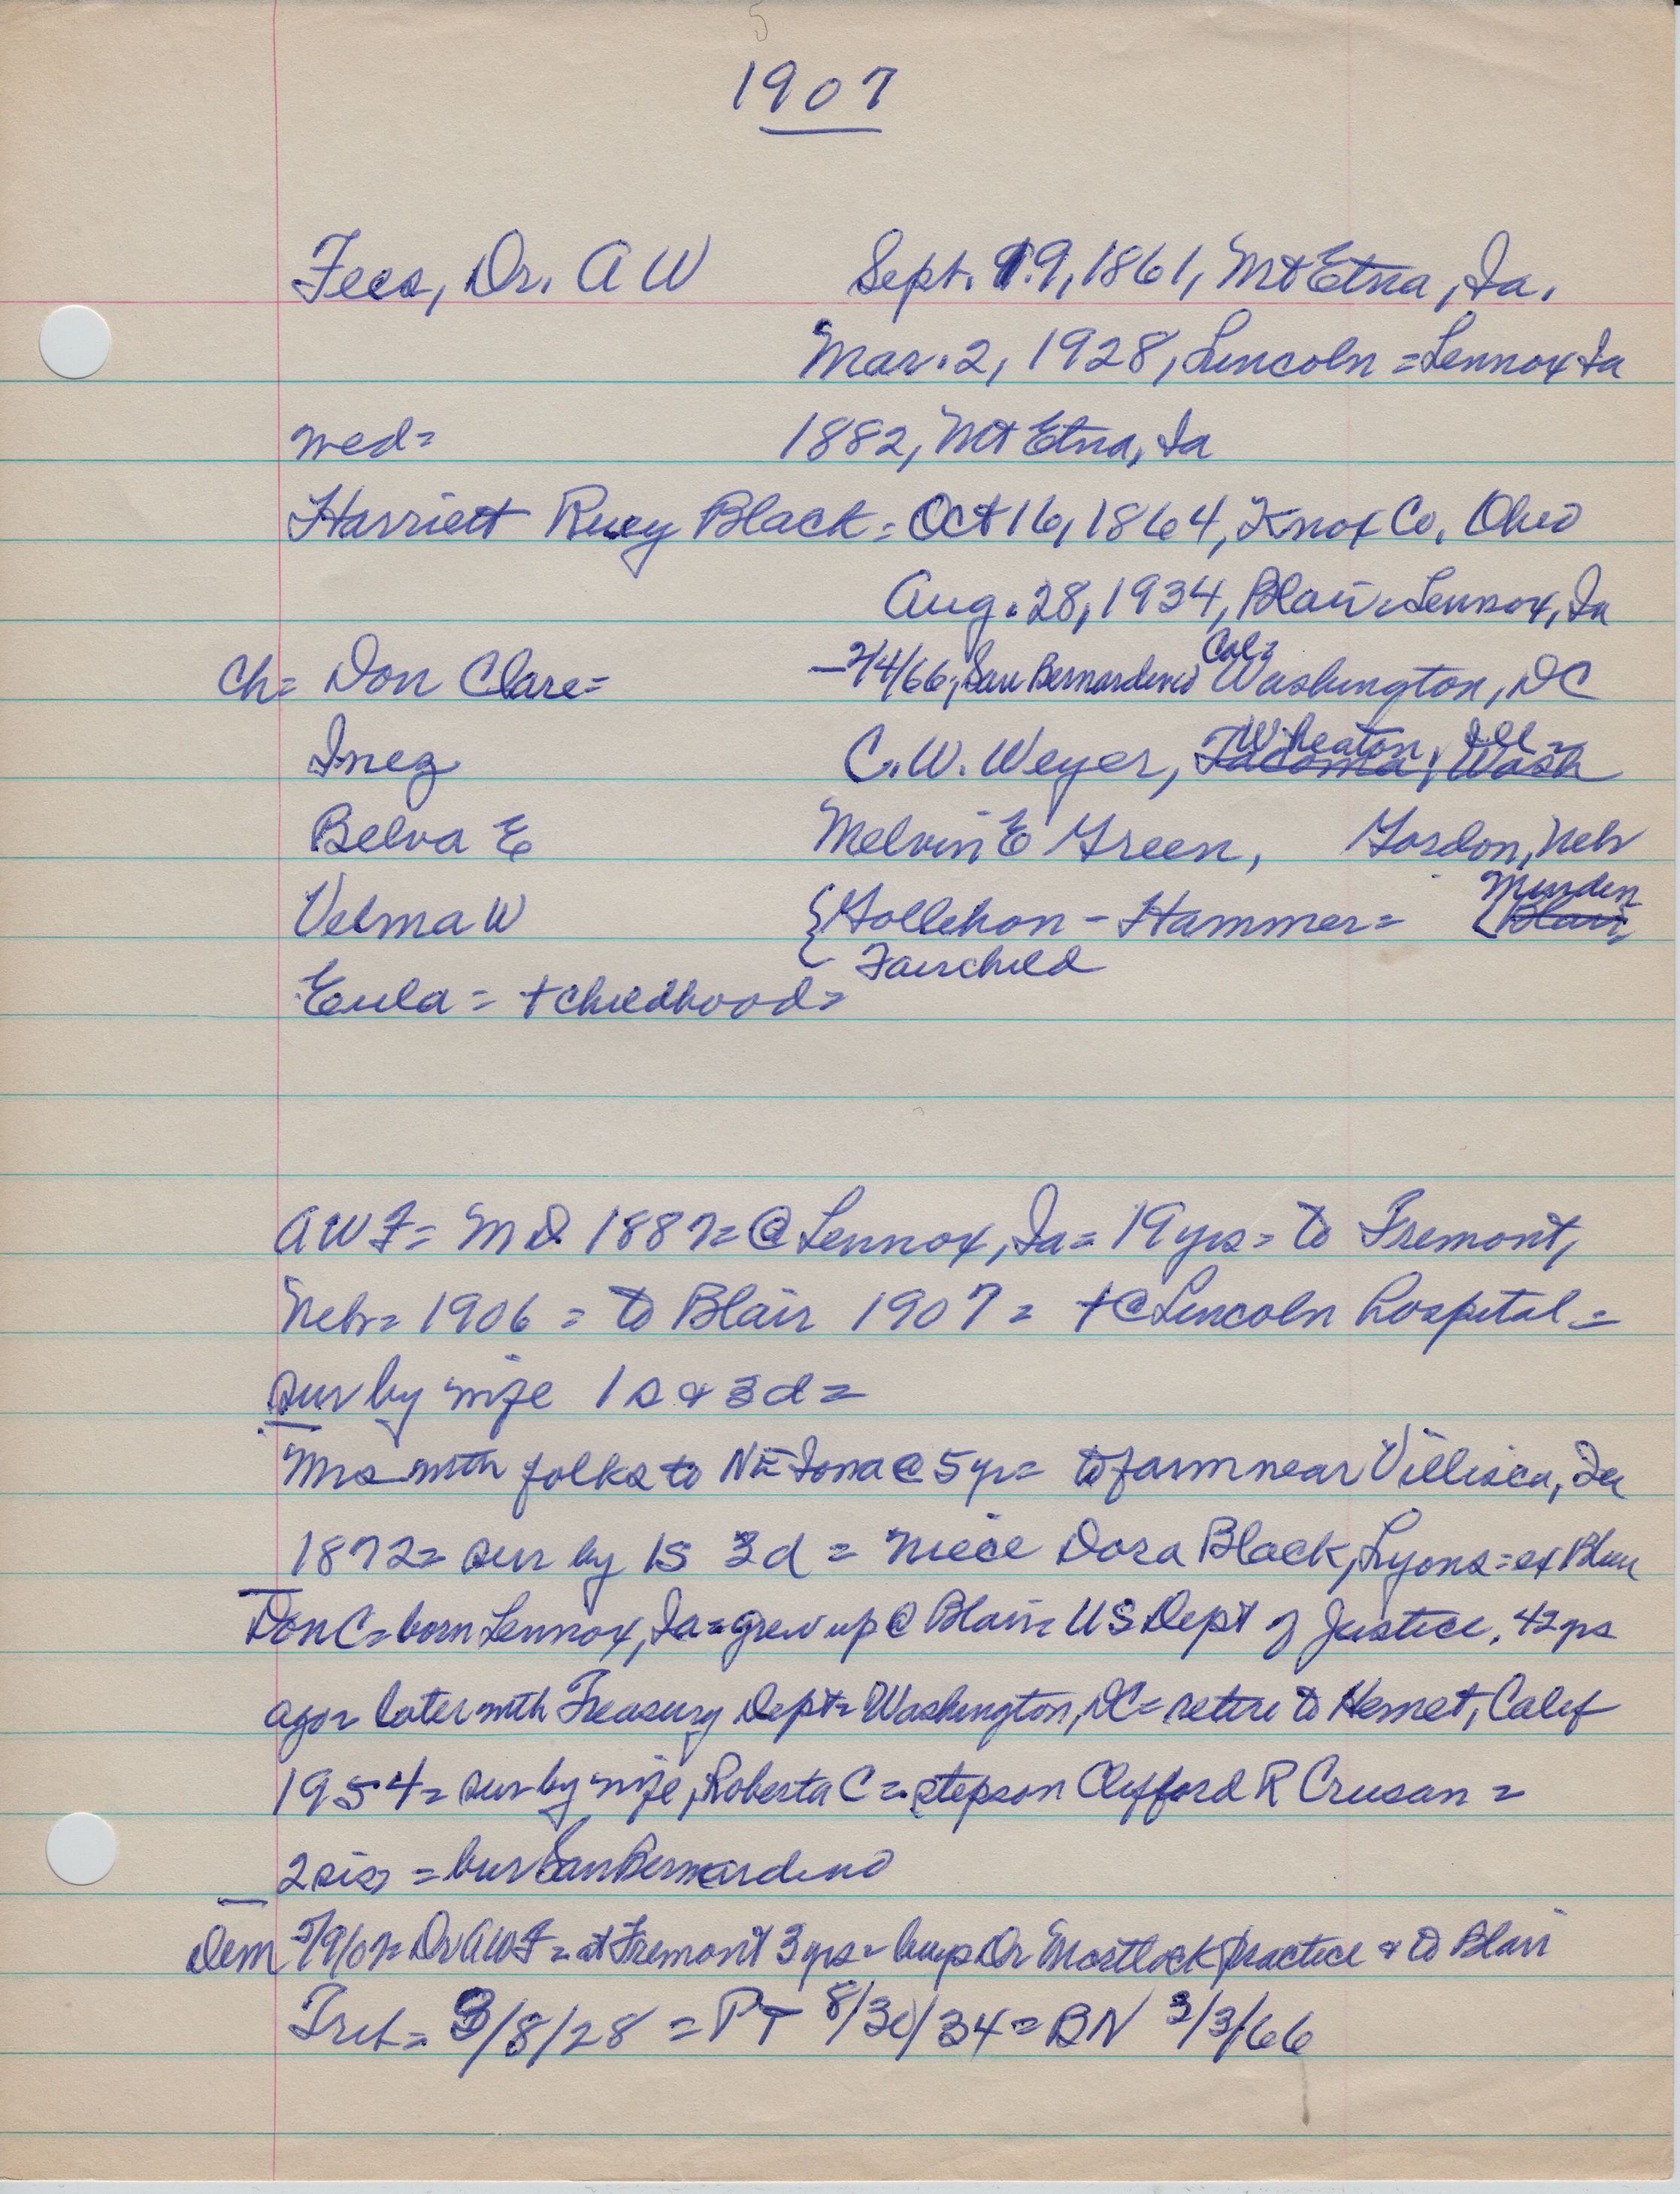 5
1907
Fees, Dr. A W Sept. 19, 1861, Mt Etna, Ia.
Mar. 2, 1928, Lincoln = Lennox Ia
wed = 1882, Mt Etna, Ia
Harriett Ruey Black = Oct 16, 1864, Knox Co, Ohio
Aug. 28, 1934, Blair = Lennox, Ia
ch = Don Clare = – 2/4/66, San Bernardino Cal = Washington, DC
Inez C. W. Weyer, Tacoma, Wash Wheaton, Ill =
Belva E Melvin E Green, Gordon, Nebr
Velma W { Gollehon – Hammer = Blair, Minden
Fairchild
Eula = + childhood =
AWF = MD 1887 = @ Lennox, Ia = 19 yrs = to Fremont,
Nebr = 1906 = to Blair 1907 = + @ Lincoln hospital =
sur by wife 1 s & 3 d =
Mrs with folks to NE Iowa @ 5 yr = to farm near Villisca, Ia
1872 = sur by 1s 3d = niece Dora Black, Lyons = ex Blair
Don C = born Lennox, Ia = grew up @ Blair = US Dept of Justice, 42 yrs
ago = later with Treasury Dept = Washington, DC = retire to Hemet, Calif
1954 = sur by wife, Roberta C = stepson Clifford R Crusan =
2 sis = bur San Bernardino
Dem 5/9/07 = Dr AWF = at Fremont 3 yrs = buys Dr Mortlock practice & to Blair
Trib = 3/8/28 = PT 8/30/34 = BN 3/3/66